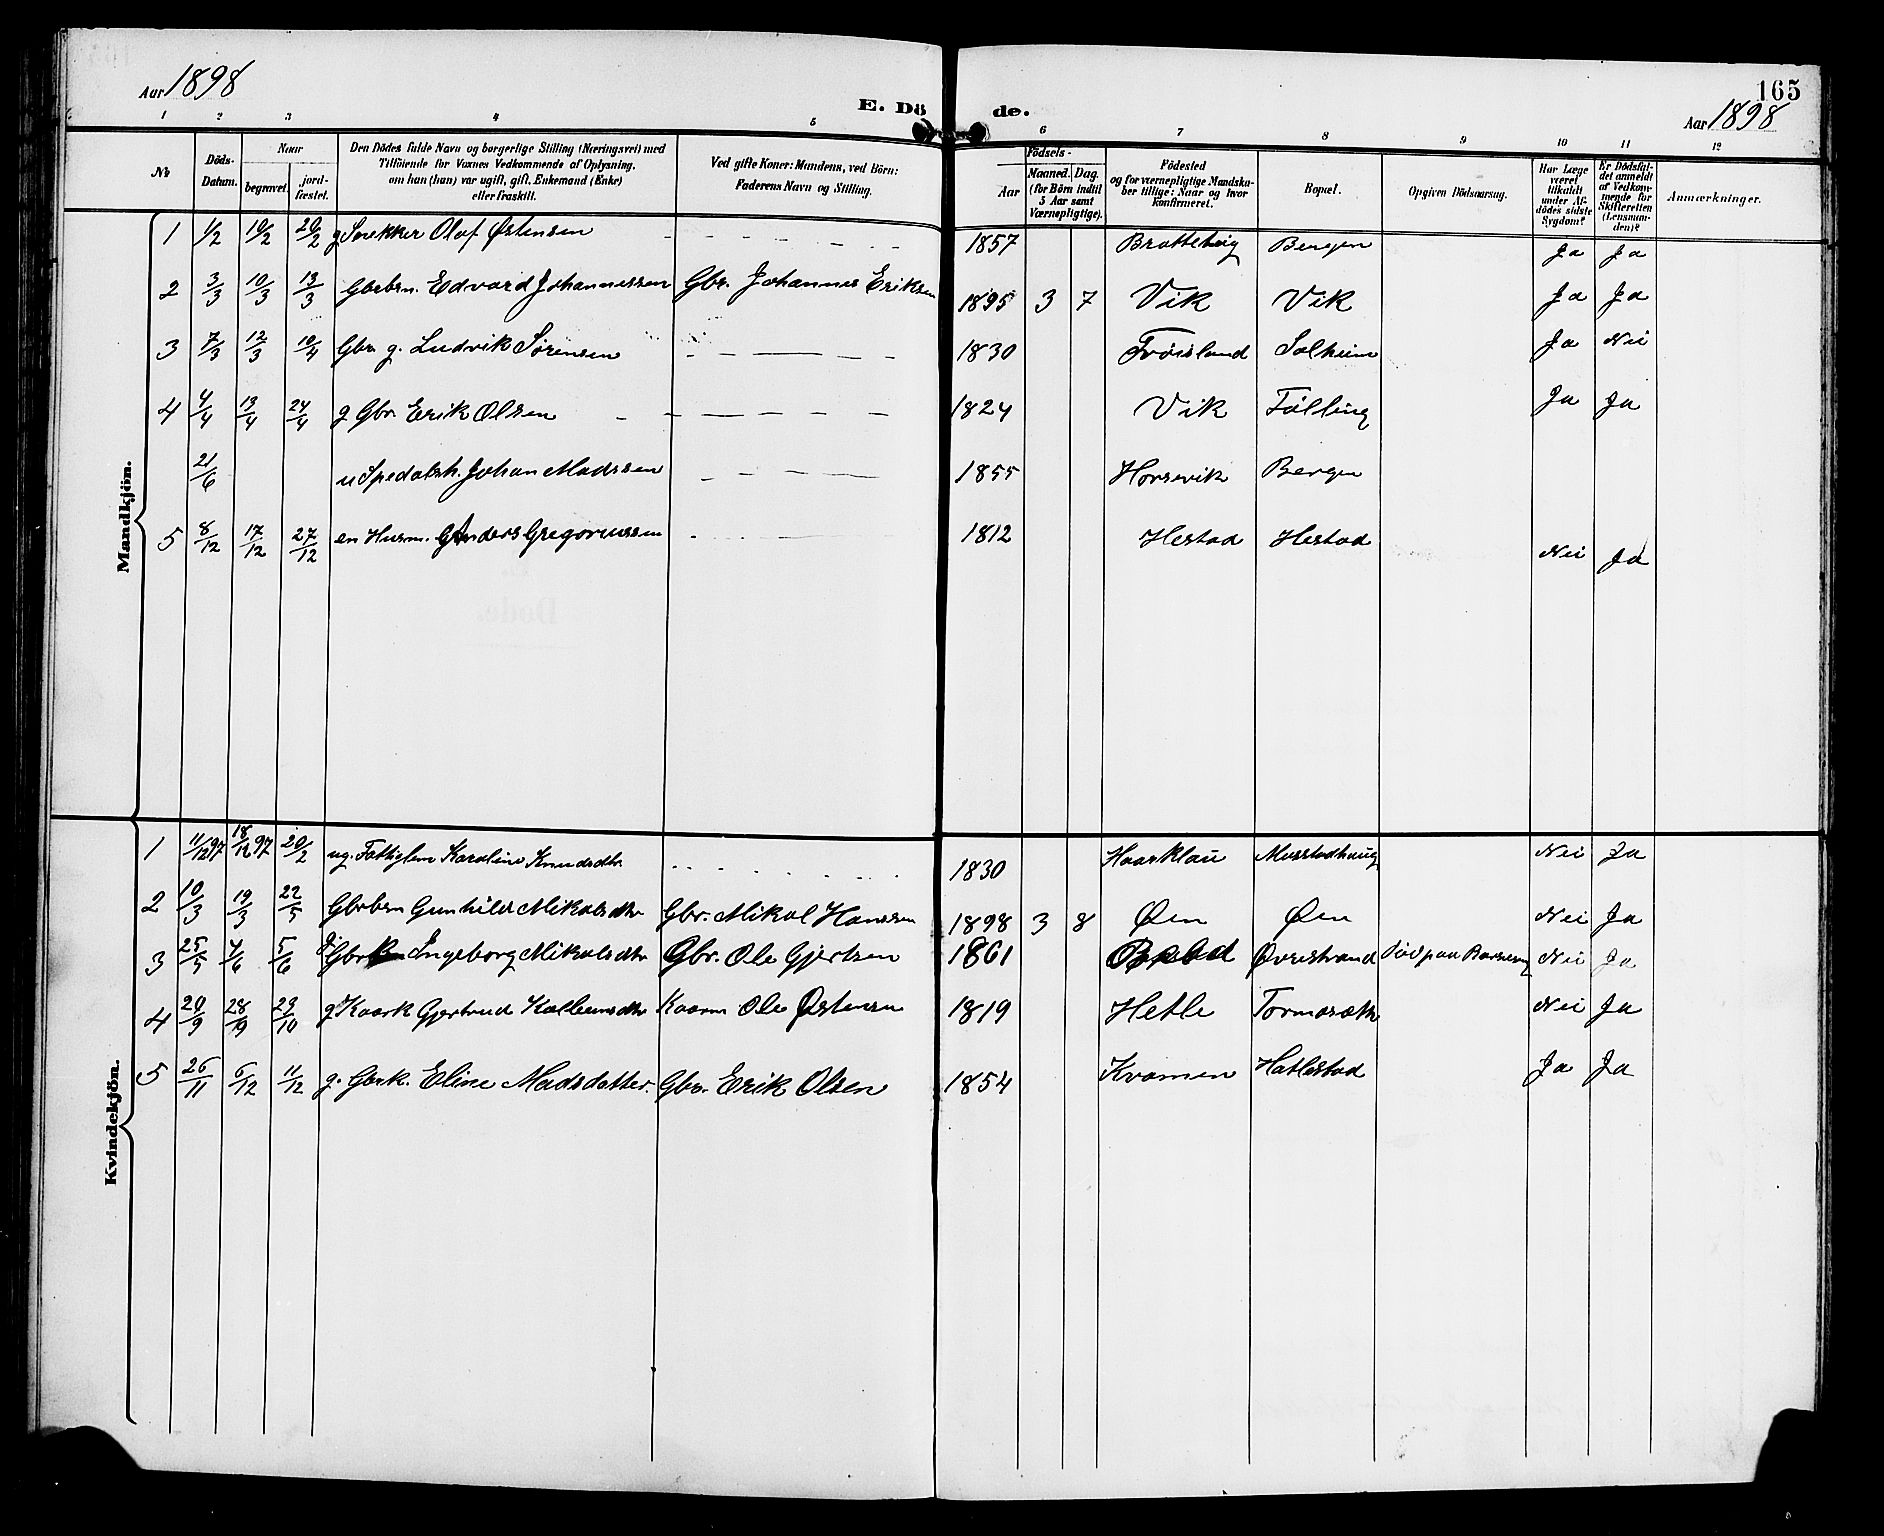 Aar 1898
E. Dö de.
165
Aar 1898
1 2 3 4 5 6 7 8 9 10 11 12
№
Döds-Datum.
Naar
begravet.
jordfæstet.
Den Dödes fulde Navn og borgerlige Stilling (Næringsvei) med
Tilföiende for Voxnes Vedkommende af Oplysning,
om han (hun) var ugift, gift, Enkemand (Enke)
eller fraskilt.
Ved gifte Koner: Mandens, ved Börn:
Faderens Navn og Stilling.
Födsels-
Aar
Maaned. Dag.
(for Börn indtil
5 Aar samt
Værnepligtige).
Födested
og for værnepligtige Mandska-
ber tillige: Naar og hvor
Konfirmeret.
Bopæl.
Opgiven Dödsaarsag.
Har Læge
været
tilkaldt
under Af-
dödes sidste
Sygdom?
Er Dödsfal-
det anmeldt
af Vedkom-
mende for
Skifteretten
(Lensman-
den)?
Anmærkninger.
Mandkjön.
1 1/2 10/2 20/2 g Snekker Olaf Østensen 1857 Brattebug Bergen Ja Ja
2 3/3 10/3 13/3 Gbrbsn. Edvard Johannessen Gbr. Johannes Eriksen 1895 3 7 Vik Vik Ja Ja
3 7/3 12/3 10/4 Gbr. g. Ludvik Sørensen 1830 Frøisland Solheim Ja Nei
4 4/4 13/4 24/4 g Gbr. Erik Olsen 1824 Vik Fölling Ja Ja
21/6 u Spedalsk. Johan Madssen 1855 Horsevik Bergen
5 8/12 17/12 27/12 en Husm. Anders Gregoriussen 1812 Hestad Hestad Nei Ja
Kvindekjön.
1 11/12 97 18/12 97 20/2 ug. Fattiglem Karoline Knudsdtr 1830 Haarklau Mosstadhaug Nei Ja
2 10/3 19/3 22/5 Gbrbsn Gunhild Mikalsdtr Gbr. Mikal Hanssen 1898 3 8 Øen Øen Nei Ja
3 25/5 4/6 5/6 g. Gbrk Ingeborg Mikalsdtr Gbr. Ole Gjertsen 1861 Øvrestrand Död paa Barseng Nei Ja
4 20/9 28/9 23/10 g Kaark Gjertrud Kolbeinsdtr Kaarm Ole Østensen 1819 Hetle Tormaræth Nei Ja
5 26/11 6/12 11/12 g. Gbrk. Eline Madsdatter. Gbr. Erik Olsen 1854 Kvamen Hatlestad Ja Ja